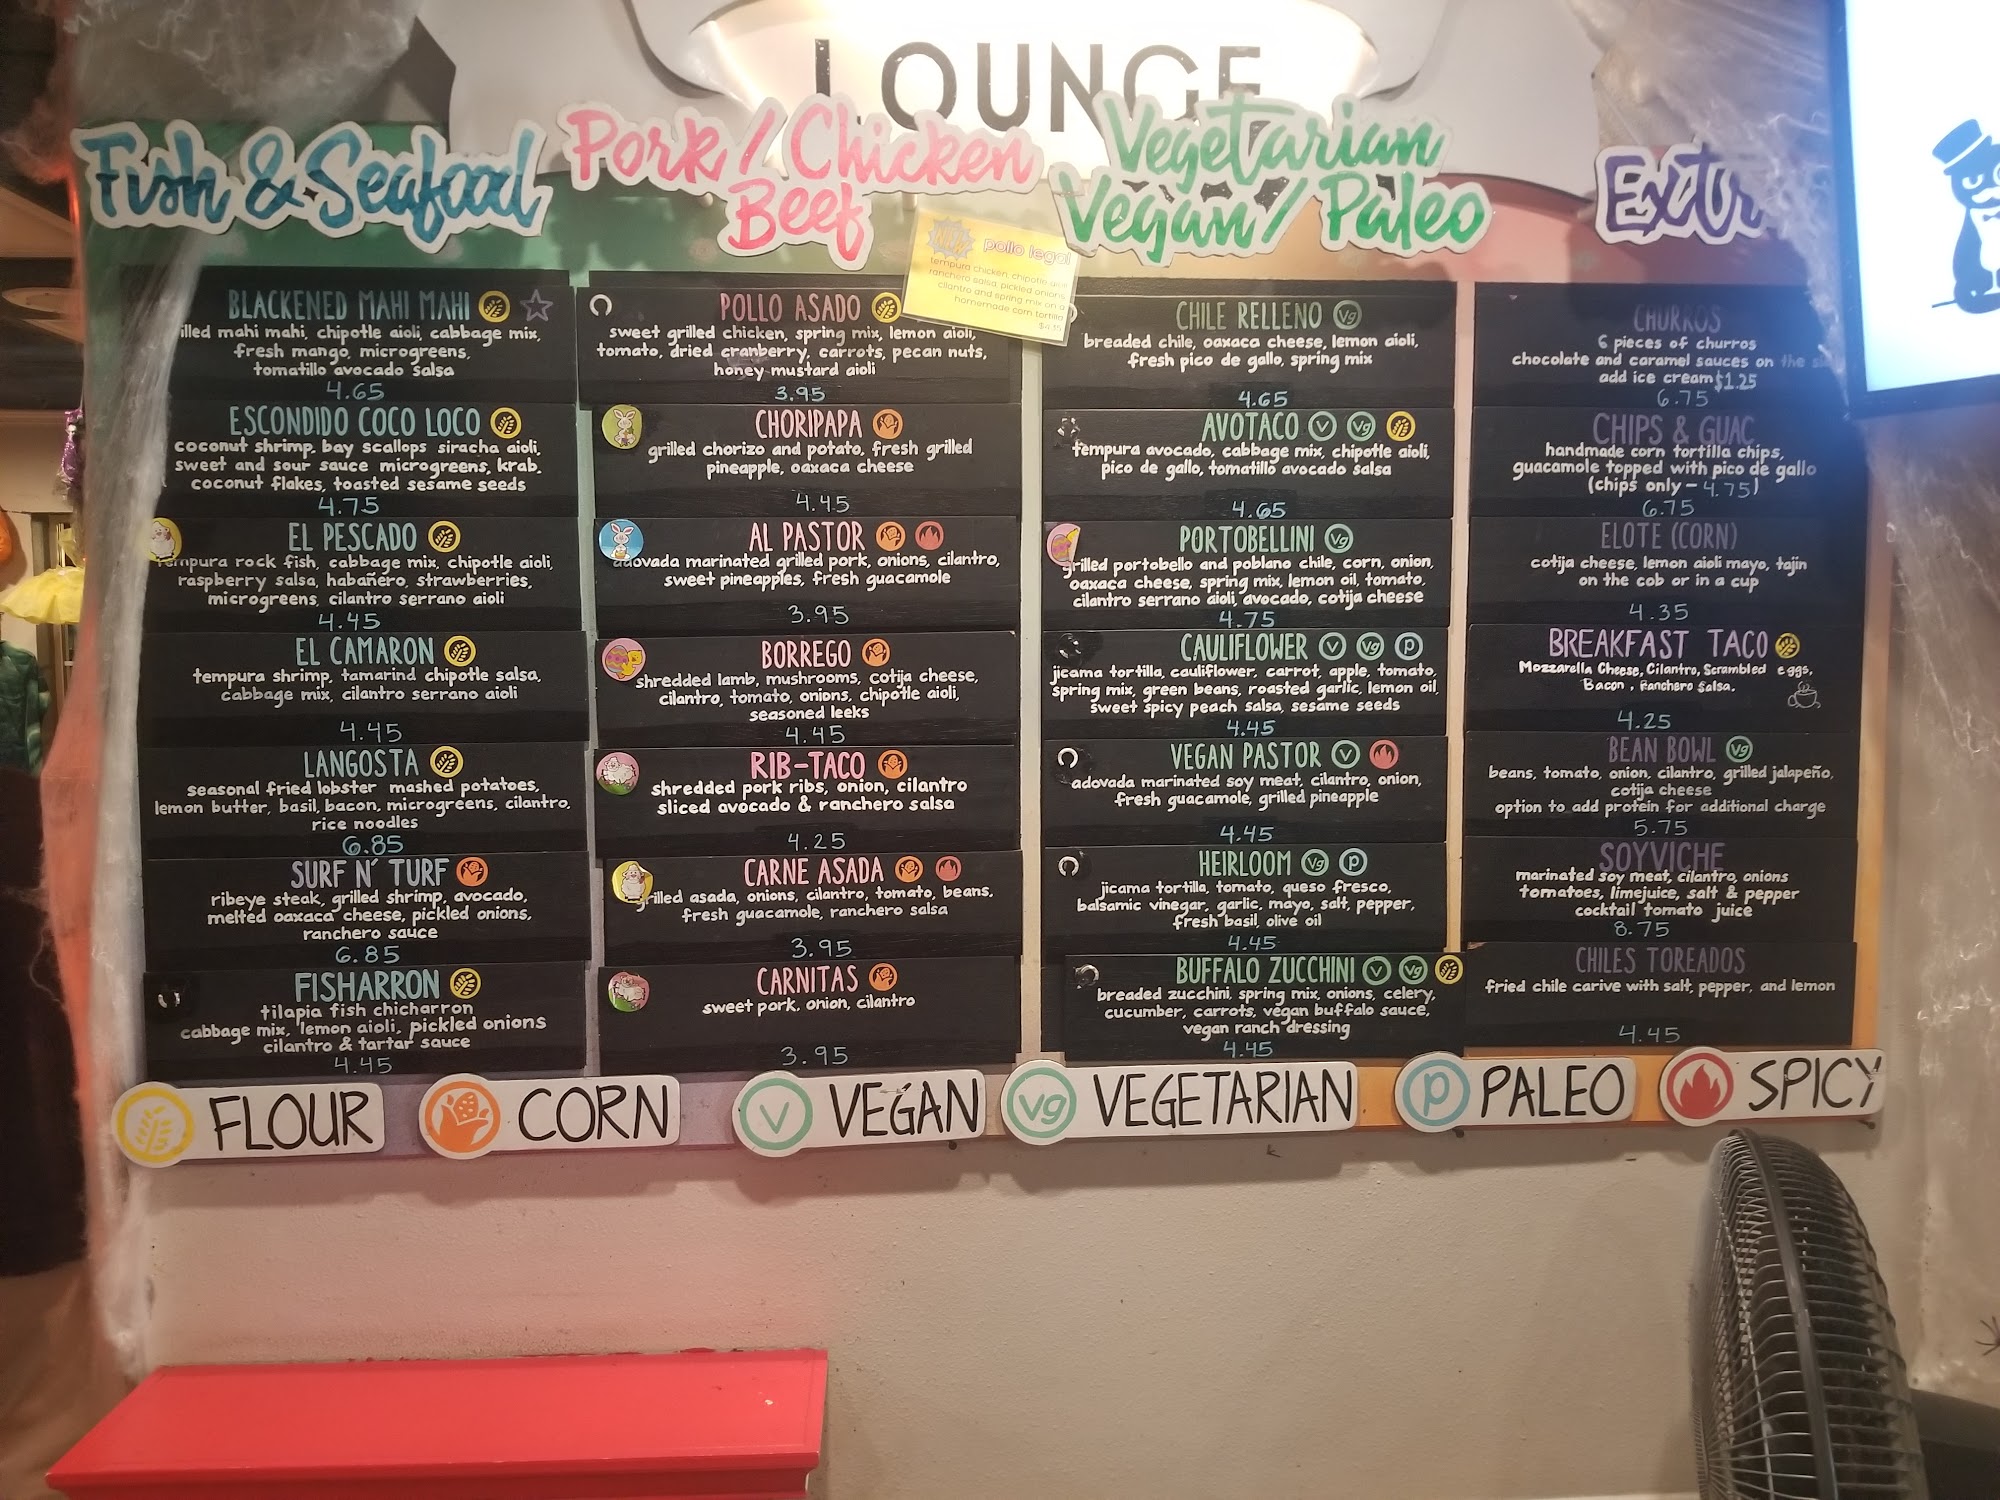 LOUNGE
Fish & Seafood
BLACKENED MAHI MAHI
mahi mahi, chipotle aioli, cabbage mix,
fresh mango, microgreens,
tomatillo avocado salsa
4.65
ESCONDIDO COCO LOCO
coconut shrimp, bay scallops siracha aioli,
sweet and sour sauce microgreens, krab,
coconut flakes, toasted sesame seeds
4.75
EL PESCADO
rock fish, cabbage mix, chipotle aioli,
raspberry salsa, habañero, strawberries,
microgreens, cilantro serrano aioli
4.45
EL CAMARON
tempura shrimp, tamarind chipotle salsa,
cabbage mix, cilantro serrano aioli
4.45
LANGOSTA
seasonal fried lobster mashed potatoes,
lemon butter, basil, bacon, microgreens, cilantro,
rice noodles
6.85
SURF N' TURF
ribeye steak, grilled shrimp, avocado,
melted oaxaca cheese, pickled onions,
ranchero sauce
6.85
FISHARRON
tilapia fish chicharron
cabbage mix, lemon aioli, pickled onions
cilantro & tartar sauce
4.45
Pork / Chicken
Beef
NEW pollo legal
tempura chicken, chipotle aioli
ranchero salsa, pickled onions,
cilantro and spring mix on a
homemade corn tortilla
$4.35
POLLO ASADO
sweet grilled chicken, spring mix, lemon aioli,
tomato, dried cranberry, carrots, pecan nuts,
honey mustard aioli
3.95
CHORIPAPA
grilled chorizo and potato, fresh grilled
pineapple, oaxaca cheese
4.45
AL PASTOR
adovada marinated grilled pork, onions, cilantro,
sweet pineapples, fresh guacamole
3.95
BORREGO
shredded lamb, mushrooms, cotija cheese,
cilantro, tomato, onions, chipotle aioli,
seasoned leeks
4.45
RIB-TACO
shredded pork ribs, onion, cilantro
sliced avocado & ranchero salsa
4.25
CARNE ASADA
grilled asada, onions, cilantro, tomato, beans,
fresh guacamole, ranchero salsa
3.95
CARNITAS
sweet pork, onion, cilantro
3.95
Vegetarian
Vegan / Paleo
CHILE RELLENO Vg
breaded chile, oaxaca cheese, lemon aioli,
fresh pico de gallo, spring mix
4.65
AVOTACO V Vg
tempura avocado, cabbage mix, chipotle aioli,
pico de gallo, tomatillo avocado salsa
4.65
PORTOBELLINI Vg
grilled portobello and poblano chile, corn, onion,
oaxaca cheese, spring mix, lemon oil, tomato,
cilantro serrano aioli, avocado, cotija cheese
4.75
CAULIFLOWER V Vg P
jicama tortilla, cauliflower, carrot, apple, tomato,
spring mix, green beans, roasted garlic, lemon oil,
sweet spicy peach salsa, sesame seeds
4.45
VEGAN PASTOR V
adovada marinated soy meat, cilantro, onion,
fresh guacamole, grilled pineapple
4.45
HEIRLOOM Vg P
jicama tortilla, tomato, queso fresco,
balsamic vinegar, garlic, mayo, salt, pepper,
fresh basil, olive oil
4.45
BUFFALO ZUCCHINI V Vg
breaded zucchini, spring mix, onions, celery,
cucumber, carrots, vegan buffalo sauce,
vegan ranch dressing
4.45
CHURROS
6 pieces of churros
chocolate and caramel sauces on the
add ice cream $1.25
6.75
CHIPS & GUAC
handmade corn tortilla chips,
guacamole topped with pico de gallo
(chips only - 4.75)
6.75
ELOTE (CORN)
cotija cheese, lemon aioli mayo, tajin
on the cob or in a cup
4.35
BREAKFAST TACO
Mozzarella Cheese, Cilantro, Scrambled eggs,
Bacon, Ranchero Salsa.
4.25
BEAN BOWL Vg
beans, tomato, onion, cilantro, grilled jalapeño,
cotija cheese
option to add protein for additional charge
5.75
SOYVICHE
marinated soy meat, cilantro, onions
tomatoes, limejuice, salt & pepper
cocktail tomato juice
8.75
CHILES TOREADOS
fried chile carive with salt, pepper, and lemon
4.45
FLOUR
CORN
V VEGAN
Vg VEGETARIAN
P PALEO
SPICY